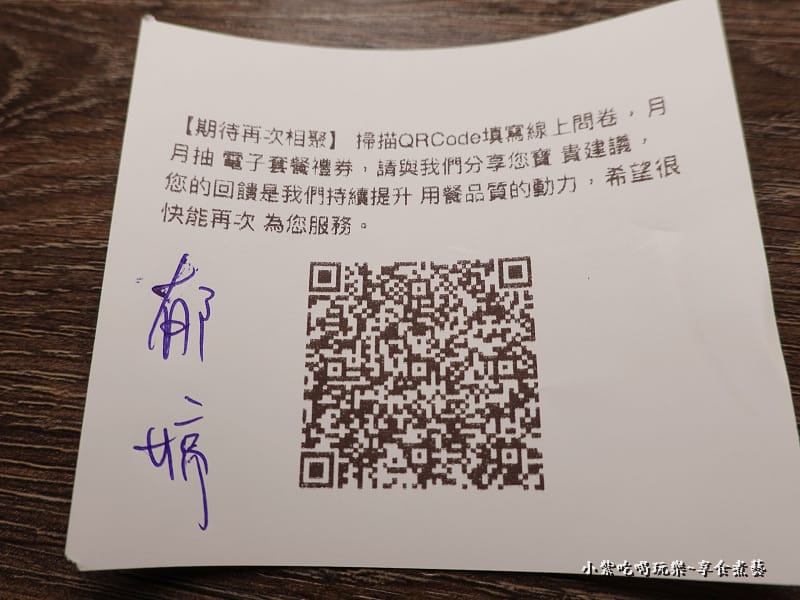 【期待再次相聚】 掃描QRCode填寫線上問卷，月
月抽 電子套餐禮券，請與我們分享您寶 貴建議，
您的回饋是我們持續提升 用餐品質的動力，希望很
快能再次 為您服務。
郁
婷
小紫吃喝玩樂~享食煮藝